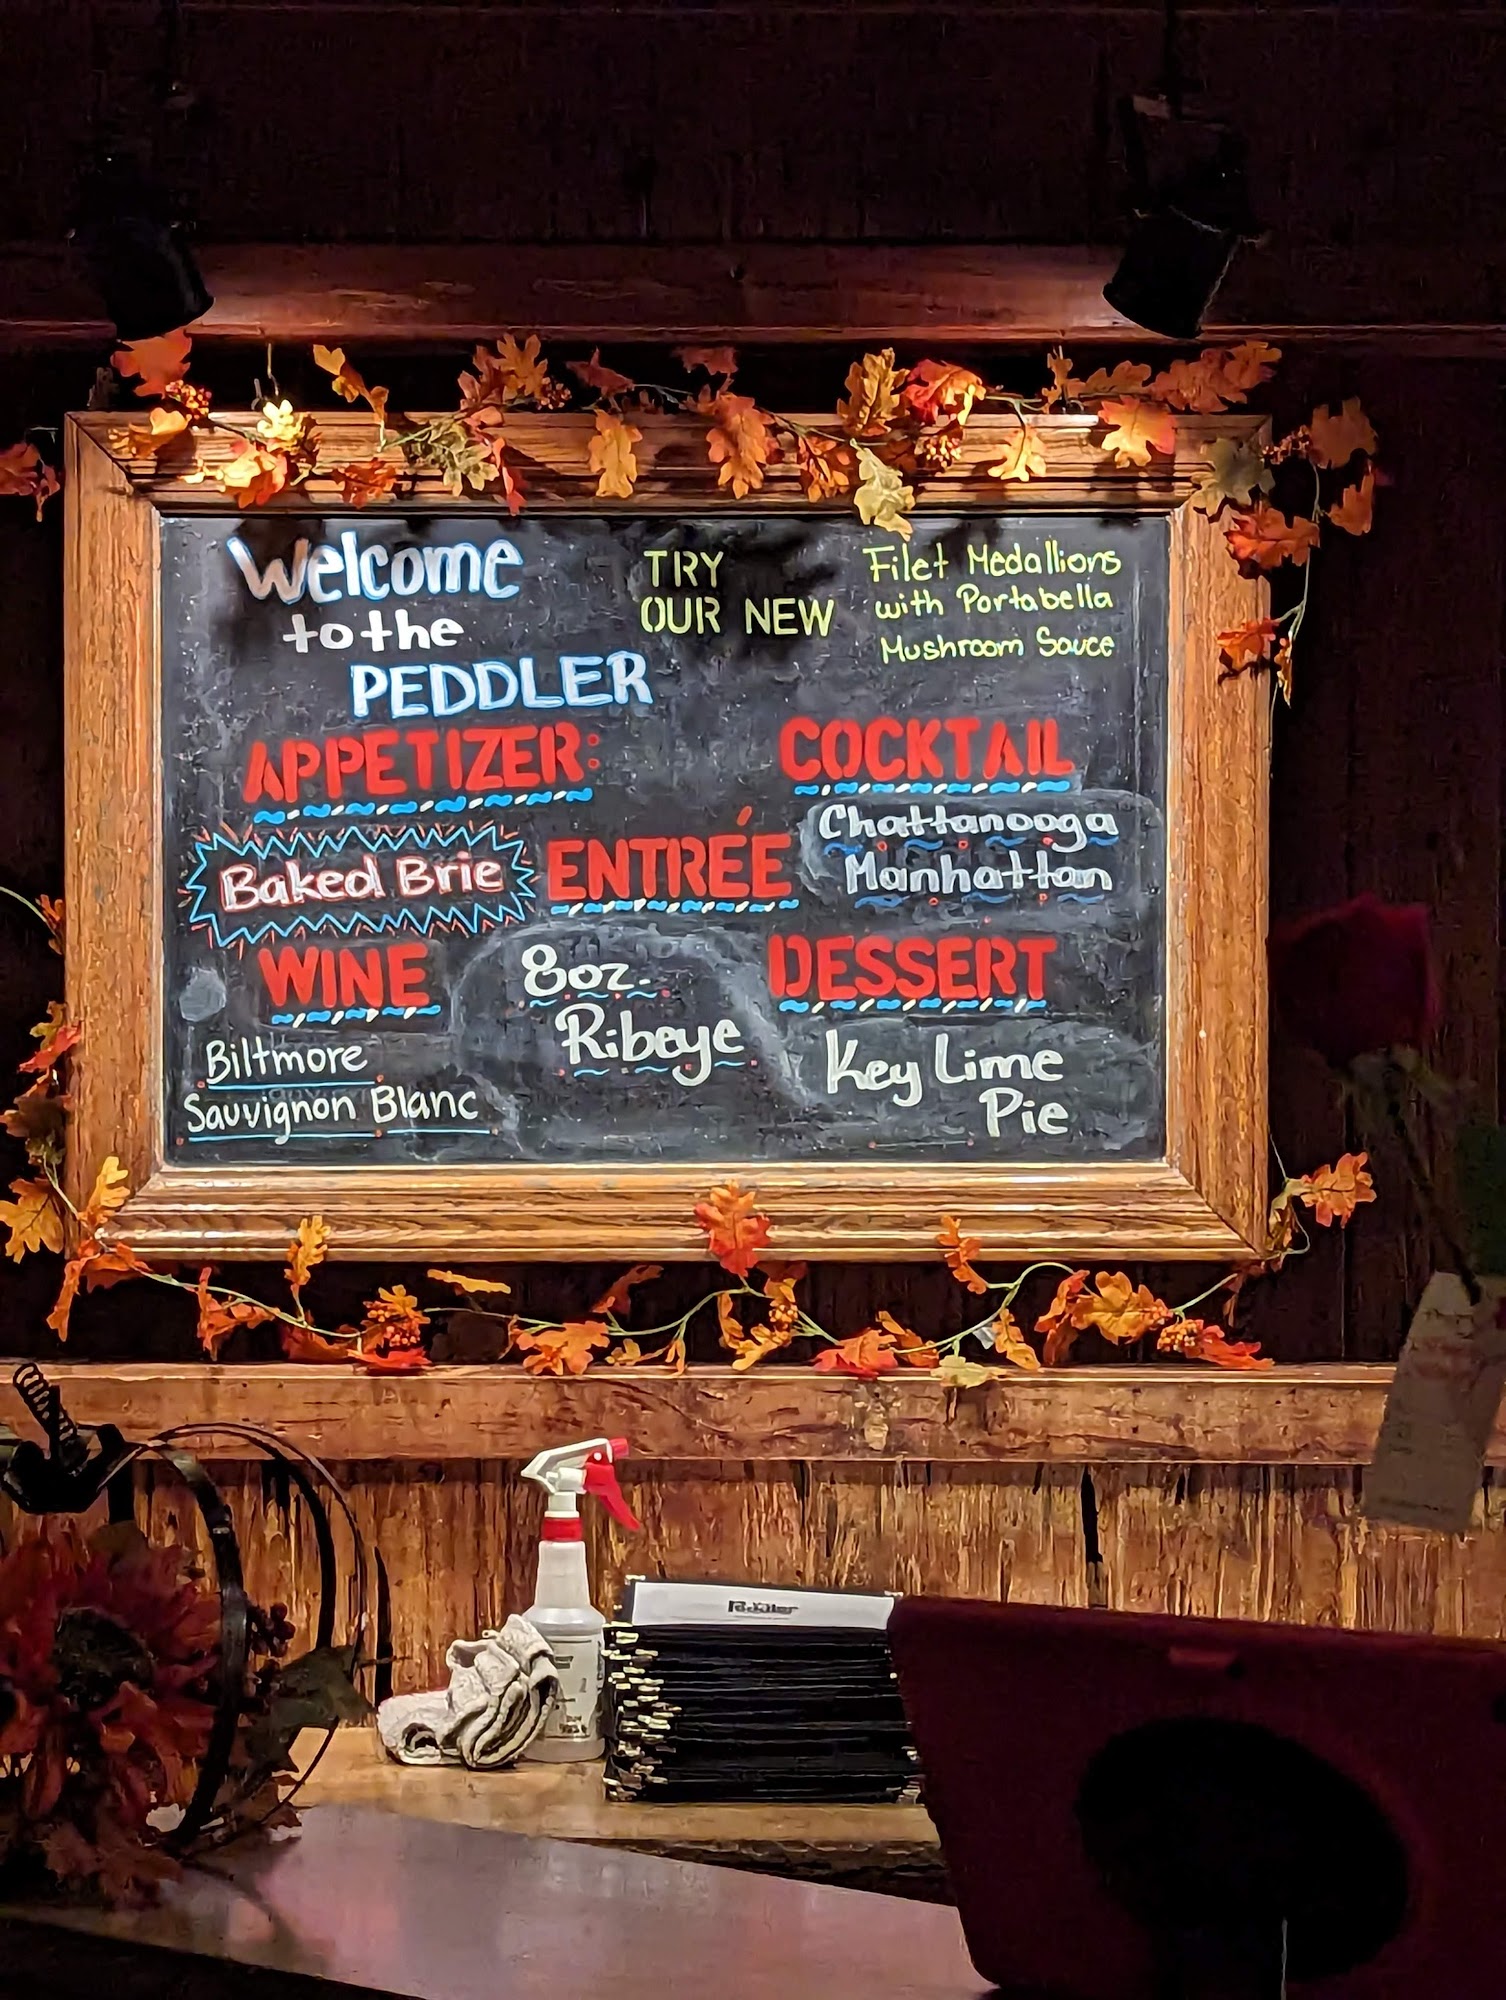 Welcome
to the
PEDDLER
TRY
OUR NEW
Filet Medallions
with Portabella
Mushroom Sauce
APPETIZER:
Baked Brie
WINE
Biltmore
Sauvignon Blanc
ENTRÉE
8oz.
Ribeye
COCKTAIL
Chattanooga
Manhattan
DESSERT
Key Lime
Pie
Peddler